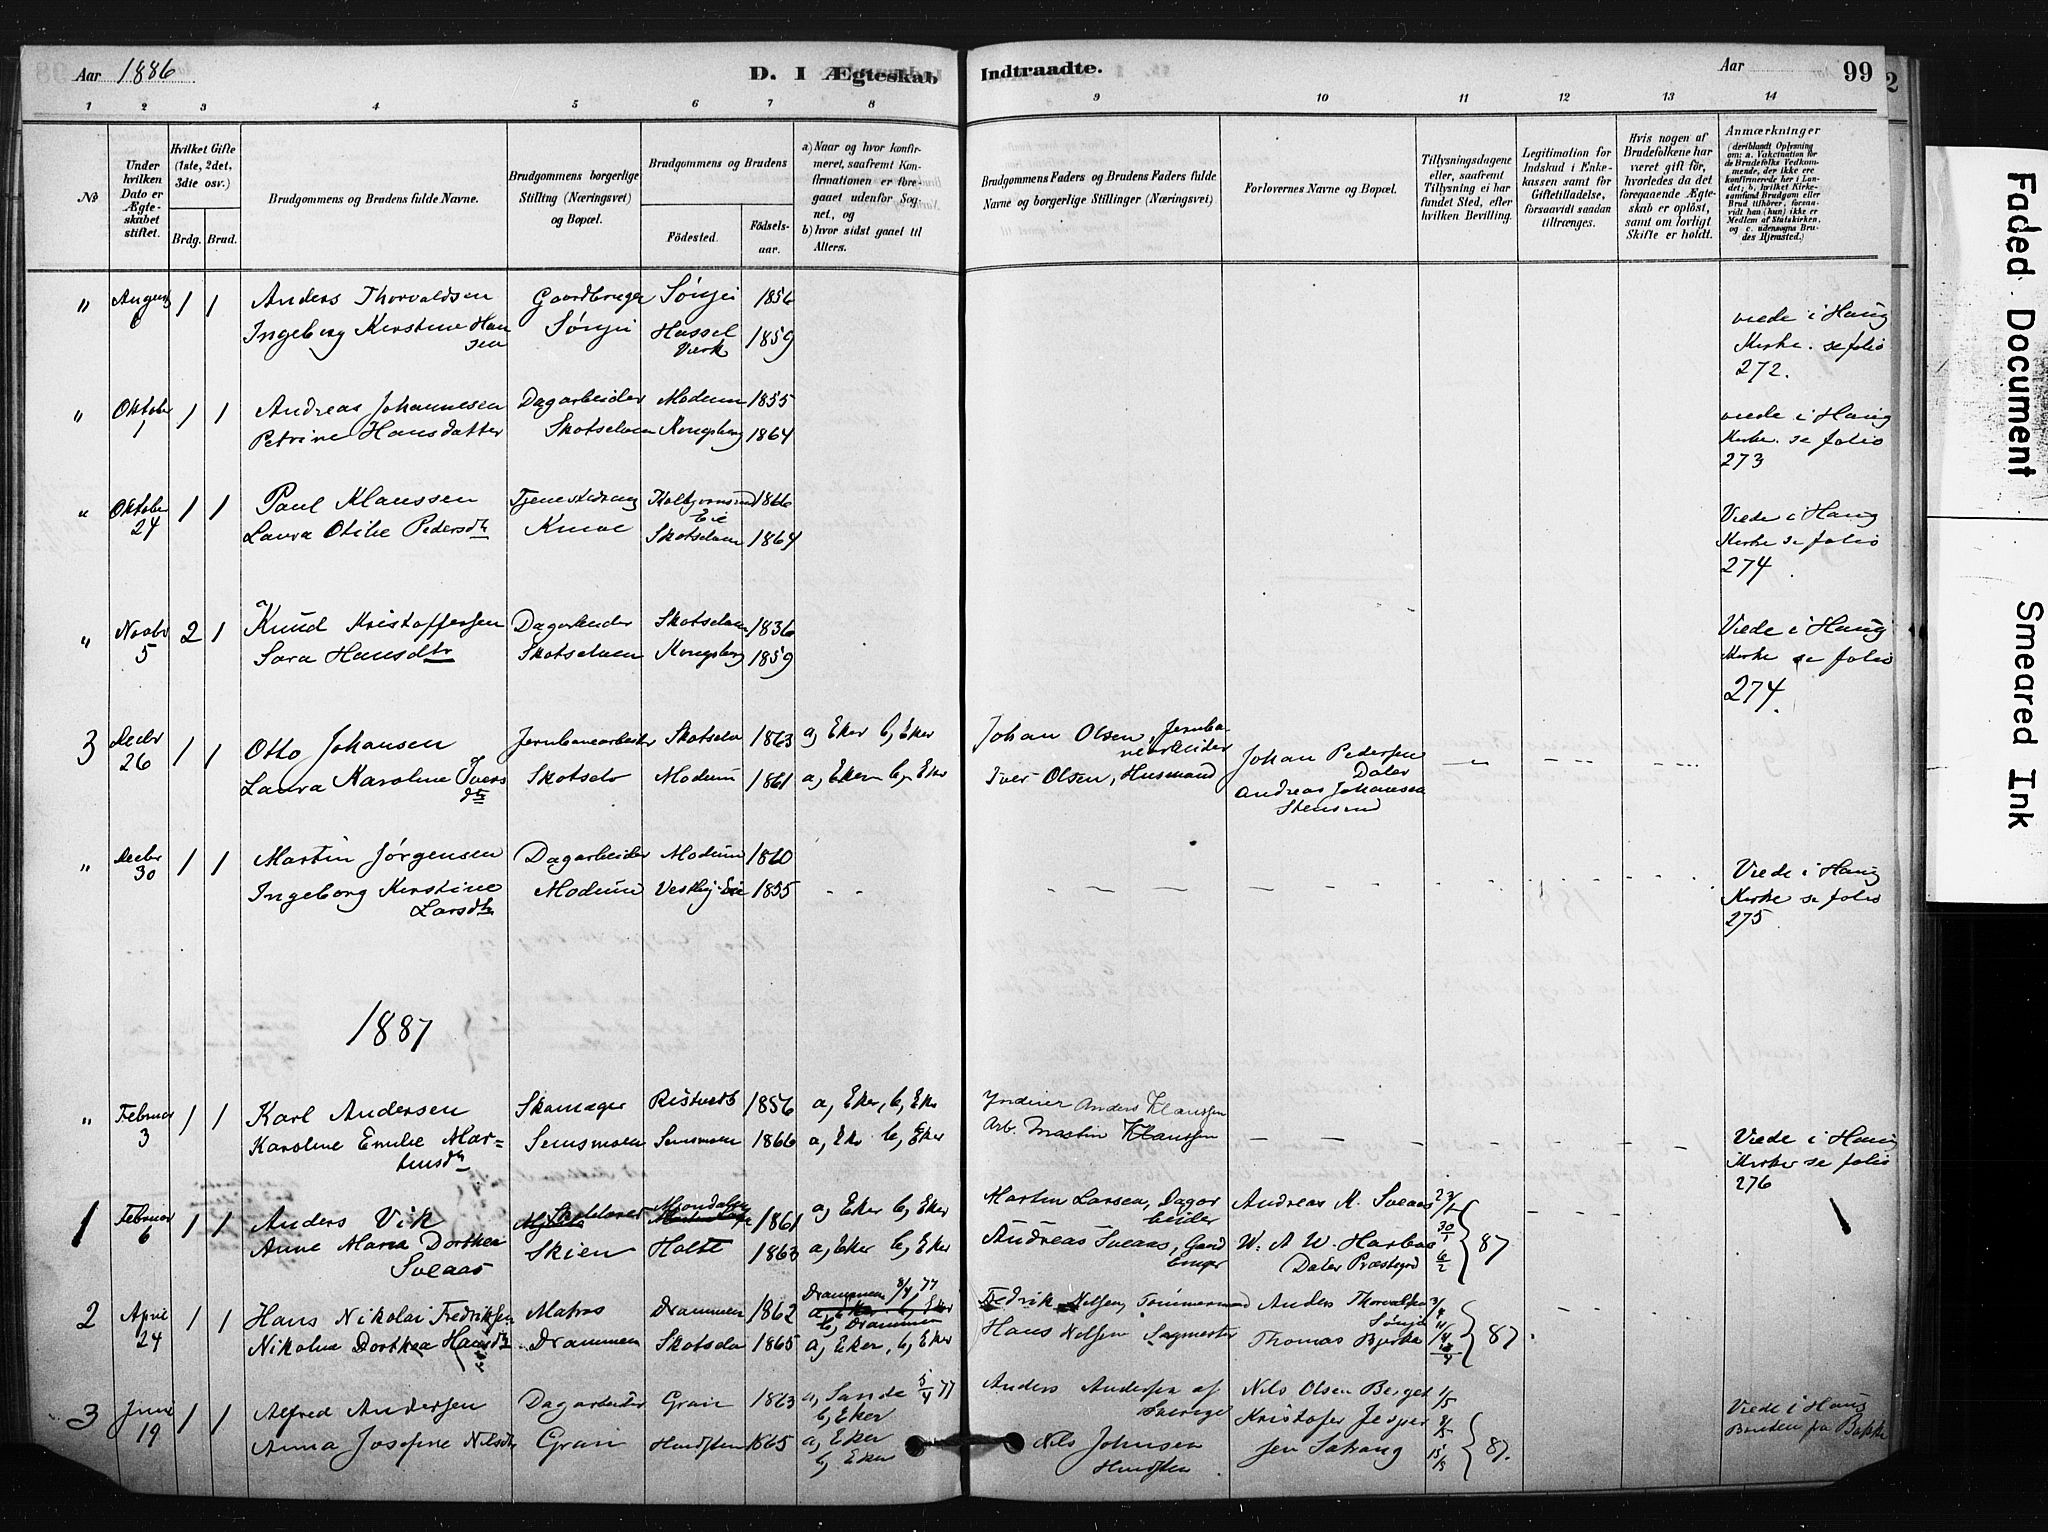 Aar 1886
D. I Ægteskab
Indtraadte.
Aar
99
1 2 3 4 5 6 7 8 9 10 11 12 13 14
№
Under hvilken Dato er Ægteskabet stiftet.
Hvilket Gifte (1ste, 2det, 3die osv.)
Brdg. Brud.
Brudgommens og Brudens fulde Navne.
Brudgommens borgerlige Stilling (Næringsvei) og Bopæl.
Brudgommens og Brudens
Födested.
Födselsaar.
a) Naar og hvor konfirmeret, saafremt Konfirmationen er foregaaet udenfor Sognet, og
b) hvor sidst gaaet til Alters.
Brudgommens Faders og Brudens Faders fulde Navne og borgerlige Stillinger (Næringsvei)
Forlovernes Navne og Bopæl.
Tillysningsdagene eller, saafremt Tillysning ei har fundet Sted, efter hvilken Bevilling.
Legitimation for Indskud i Enkekassen samt for Giftetilladelse, forsaavidt saadan tiltrænges.
Hvis nogen af Brudefolkene har været gift før, hvorledes da det foregaaende Ægteskab er oplöst, samt om lovligt Skifte er holdt.
Anmærkninger (deriblandt Oplysning om: a. Vakcination for de Brudefolks Vedkommende, der ikke ere konfirmerede her i Landet; b. hvilket Kirkesamfund Brudgom eller Brud tilhører, forsaavidt han (hun) ikke er Medlem af Statskirken, og c. udensogns Brudes Hjemsted.)
" August 6 1 1 Anders Thorvaldsen Gaardbruger Sønju 1856
Ingeborg Kirstine Hansen Sønju Hassel Værk 1859
viede i Haug Kirke. se folio 272.
" Oktober 1 1 1 Andreas Johannesen Dagarbeider Modum 1855
Petrine Hansdatter Skotselven Kongsberg 1864
viede i Haug Kirke. se folio 273
" Oktober 24 1 1 Paul Klaussen Tjenestedreng Kolbjørnsrud Eie 1866
Laura Otilie Pedersdtr Knive Skotselven 1864
Viede i Haug Kirke se folio 274.
" Novbr 5 2 1 Knud Kristoffersen Dagarbeider Skotselven 1836
Sara Hansdtr Skotselven Kongsberg 1859
Viede i Haug Kirke se folio 274.
3 Decbr 26 1 1 Otto Johansen Jernbanearbeider Skotselv 1863 a, Eker b, Eker
Johan Olsen, Jernbanearbeider
Johan Pedersen Daler
Laura Karoline Iversdtr Skotselv Modum 1861 a, Eker b, Eker
Iver Olsen, Husmand
Andreas Johansen Stensrud
" Decbr 30 1 1 Martin Jørgensen Dagarbeider Modum 1860
Ingeborg Kirstine Larsdtr Modum Vestby Eie 1855
Viede i Haug Kirke se folio 275
1887
" Februar 3 1 1 Karl Andersen Skomager Ristvedt 1856 a, Eker, b, Eker
Inderst Anders Klaussen
Karoline Emilie Martinsdtr Semsmoen Semsmoen 1866 a, Eker b, Eker
Arb. Martin Klaussen
Viede i Haug Kirke se folio 276
1 Februar 6 1 1 Anders Vik 1861 a, Eker b, Eker
Martin Larsen, Dagarbeider
Andreas M. Sveaas
Anne Maria Dorthea Sveaas Skien Holte 1863 a, Eker b, Eker
Andreas Sveaas, Gaard
W. A. W. Harboe Daler Præstegrd
30/1 6/2 } 87
2 April 24 1 1 Hans Nikolai Fredriksen Matros Drammen 1862 Drammen 8/4 77 a, Eker b, Eker b, Drammen
Fedrik Nelsen, Tømmermand
Anders Thorvalsen Sønju
Nikoline Dorthea Hansdtr Drammen Skotselv 1865 a, Eker, b, Eker
Hans Nelsen Sagmester
Thomas Bjerke
} 87.
3 Juni 19 1 1 Alfred Andersen Dagarbeider Gran 1863 a, Sande 5/4 77 b, Eker
Anders Andersen af Sverige
Nils Olsen Berget
Anna Josefine Nilsdtr Gran Hundsten 1865 a, Eker b, Eker
Nils Johnsen Hundsten
Kristofer Jespersen
} 87.
Viede i Haug Bruden fra Bakke
2
Faded Document
Smeared Ink